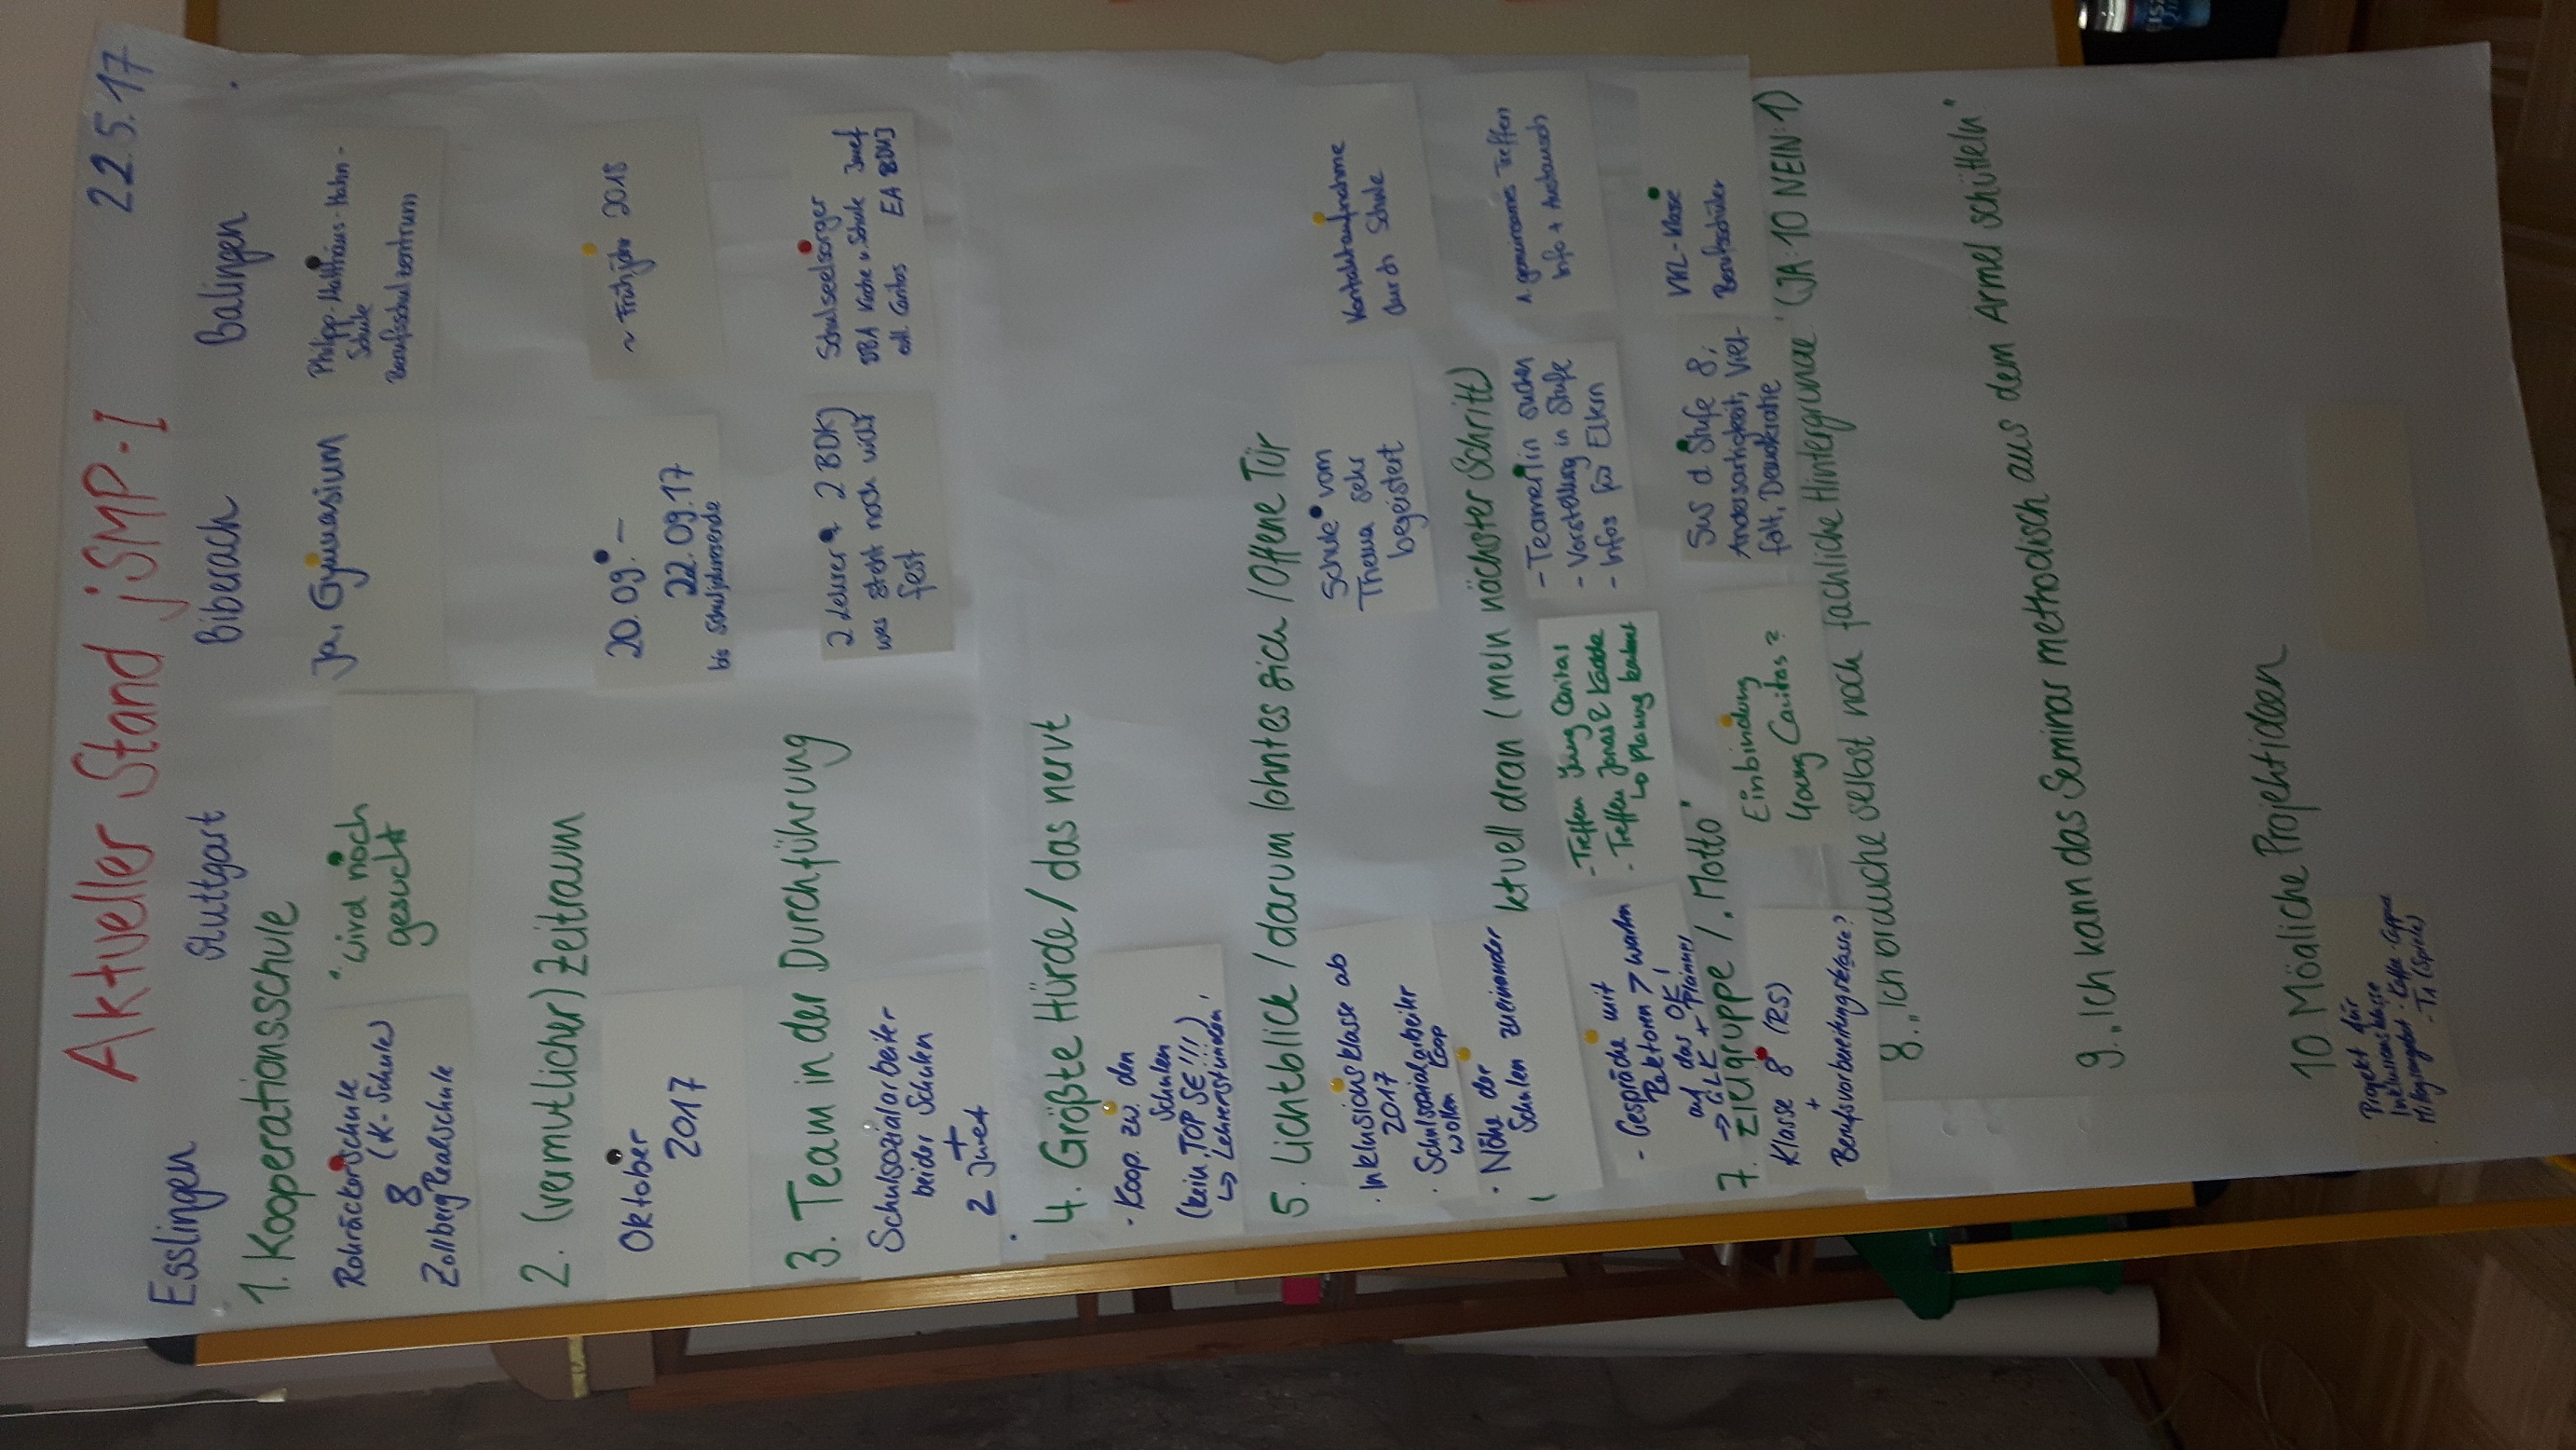 Aktueller Stand jSMP-I
22.5.17
Esslingen
Stuttgart
Biberach
Balingen
1. Kooperationsschule
Rohräckerschule
(K-Schule)
&
Zollberg Realschule
"wird noch
gesucht
Ja, Gymnasium
Philipp-Matthäus-Hahn-
Schule
Berufsschulzentrum
2. (vermutlicher) Zeitraum
Oktober
2017
20.09. –
22.09.17
bis Schuljahresende
~ Frühjahr 2018
3. Team in der Durchführung
Schulsozialarbeiter
beider Schulen
+
2 Juref
2 Lehrer, 2 BDKJ
was steht noch nicht
fest
Schulseelsorger
Kirche u. Schule Juref
evtl. Caritas EA BDKJ
4. Größte Hürde / das nervt
- Koop. zw. den
Schulen
(kein "TOP SE"!!!)
↳ Lehrerstunden!
5. Lichtblick / darum lohntes sich / Offene Tür
· Inklusionsklasse ab
2017
· Schulsozialarbeiter
wollen Koop
· Nähe der
Schulen zueinander
Schule vom
Thema sehr
begeistert
Kontaktaufnahme
durch Schule
ktuell dran (mein nächster Schritt)
- Gespräche mit
Rektoren > warten
auf das OK!
- Treffen Jung Caritas
- Treffen Jonas &
↳ Planung
- TeamerIn suchen
- Vorstellung in Stufe
- Infos für Eltern
1. gemeinsames Treffen
Info + Austausch
7. Zielgruppe / "Motto"
Klasse 8 (RS)
+
Berufsvorbereitungsklasse?
Einbindung
Young Caritas?
SuS d Stufe 8;
Andersartigkeit, Viel-
falt, Demokratie
VKL-Klasse
Berufsschüler
8. "Ich brauche selbst noch fachliche Hintergründe" (JA: 10 NEIN: 1)
9. "Ich kann das Seminar methodisch aus dem Ärmel schütteln"
10 Mögliche Projektideen
Projekt für
Inklusionsklasse